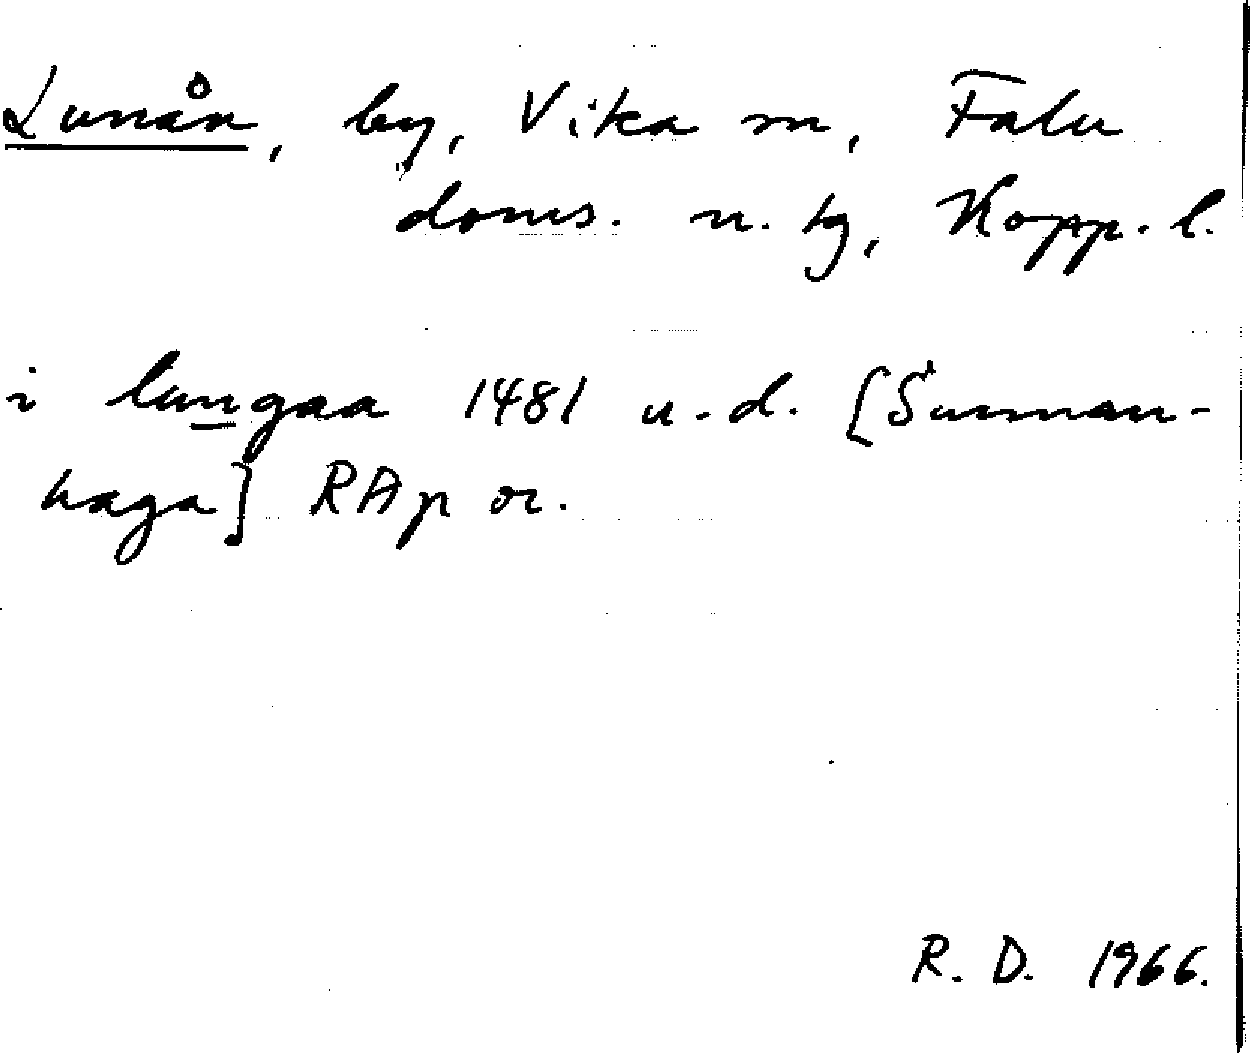 Lunån, by, Vika sn, Falu
doms. n. tg, Kopp. l.
i lungaa 1481 u.d. [Sunnan-
haga] RAp or.
R. D. 1966.